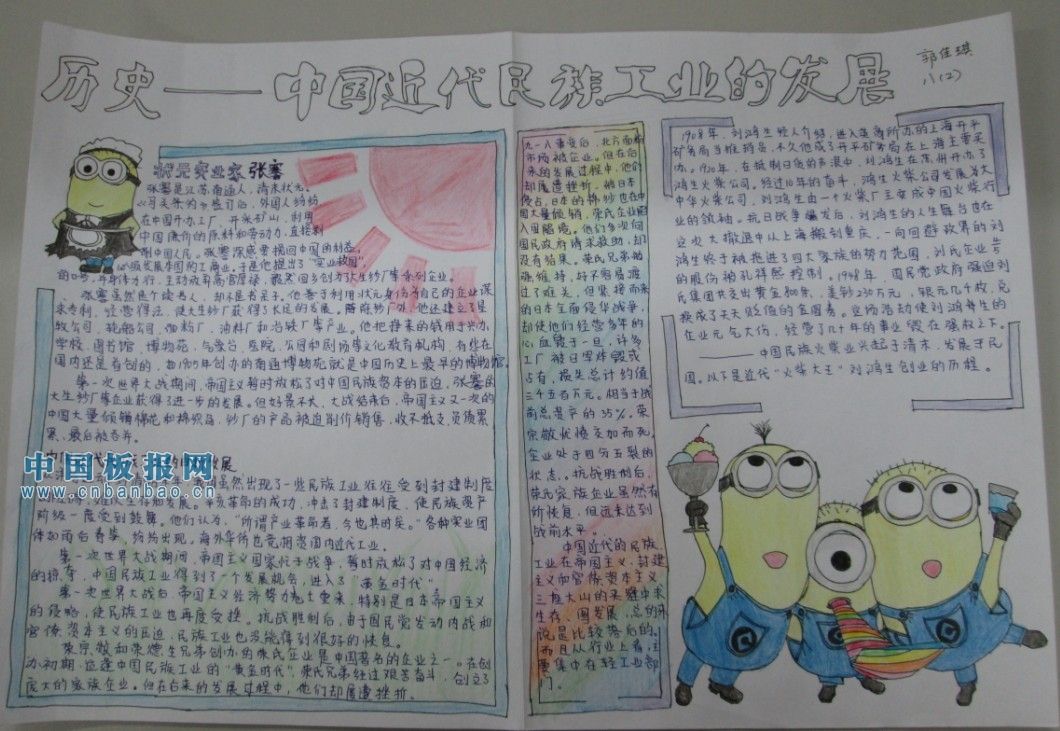 历史——中国近代民族工业的发展
郭佳琪
八(2)
状元实业家 张謇
张謇是江苏南通人，清末状元。
《马关条约》签订后，外国人纷纷
在中国开办工厂、开采矿山，利用
中国廉价的原料和劳动力，直接剥
削中国人民。张謇深感要挽回中国的利益，
必须发展本国的工商业，于是他提出了“实业救国”
张謇虽然是个读书人，却不是书呆子。他善于利用状元身份为自己的企业谋
求专利，经营得法，使大生纱厂获得了长足的发展。除底纱厂外，他还建立了垦
牧公司、轮船公司、面粉厂、油料厂和冶铁厂等产业。他把挣来的钱用于兴办
学校、图书馆、博物苑、气象台、医院、公园和剧场等文化教育机构，有些在
国内还是首创的，如1905年创办的南通博物苑就是中国历史上最早的博物馆。
第一次世界大战期间，帝国主义暂时放松了对中国民族资本的压迫，张謇的
大生纱厂等企业获得了进一步的发展。但好景不长，大战结束后，帝国主义又一次的
中国大量倾销棉花和棉织品，纱厂的产品被迫削价销售，收不抵支，负债累
累，最后被吞并。
中国板报网
www.cnbanbao.cn
发展
虽然出现了一些民族工业往往受到封建制度
发展。辛亥革命的成功，冲击了封建制度，使民族资产
阶级一度受到鼓舞。他们认为，“所谓产业革命者，今也其时矣。”各种实业团
体如雨后春笋，纷纷出现。海外华侨也竞相资国内近代工业。
第一次世界大战期间，帝国主义国家忙于战争，暂时放松了对中国经济
的掠夺，中国民族工业得到了一个发展机会，进入了“黄金时代”
第一次世界大战后，帝国主义经济势力卷土重来，特别是日本帝国主义
的侵略，使民族工业也再度受挫。抗战胜利后，由于国民党发动内战和
官僚资本主义的压迫，民族工业也没能得到很好的恢复。
荣宗敬和荣德生兄弟创办的荣氏企业是中国著名的企业之一。在创
办初期，恰逢中国民族工业的“黄金时代”，荣氏兄弟经过艰苦奋斗，创立了
庞大的家族企业。但在后来的发展过程中，他们却屡遭挫折。
九一八事变后，北方面粉
市场被企业。但在后
来的发展过程中，他们
却屡遭挫折，被日本
侵占，日本的棉纱也在中
国大量倾销，荣氏企业陷
入困境。他们多次向
国民政府请求救助，却
没有结果。荣氏兄弟艰
难维持，好不容易渡
过了难关，但紧接而来
的日本全面侵华战争，
却使他们经营多年的
心血毁于一旦，许多
工厂被日军炸毁或
占有，损失总计约值
三千五百万元。相当于战
前总资产的35%。荣
宗敬忧愤交加而死，
企业处于四分五裂的
状态。抗战胜利后，
荣氏家族企业虽然有
所恢复，但远未达到
战前水平。
中国近代的民族
工业在帝国主义、封建
主义和官僚资本主义
三座大山的夹缝中求
生存、图发展，总的来
说是比较落后的。
而且从行业上看，主
要集中在轻工业部
门。
1908年，刘鸿生经人介绍，进入英商所办的上海开平
矿务局当推销员，不久他成了开平矿务局在上海主要买
办。1920年，在抵制日货的声浪中，刘鸿生在苏州开办了
鸿生火柴公司。经过10年的奋斗，鸿生火柴公司发展为大
中华火柴公司，刘鸿生由一个火柴厂主变成中国火柴行
业的领袖。抗日战争爆发后，刘鸿生的人生舞台也在
这次大撤退中从上海搬到重庆，一向回避政界的刘
鸿生终于被拖进了四大家族的势力范围，刘氏企业多
的股份被孔祥熙控制。1948年，国民党政府强迫刘
氏集团共交出黄金800条、美钞230万元，银元几千枚，兑
换成了天天贬值的金圆券。这场活动使刘鸿生的
企业元气大伤，经营了几十年的事业毁在强权之下。
——中国民族火柴业兴起于清末，发展于民
国。以下是近代“火柴大王”刘鸿生创业的历程。